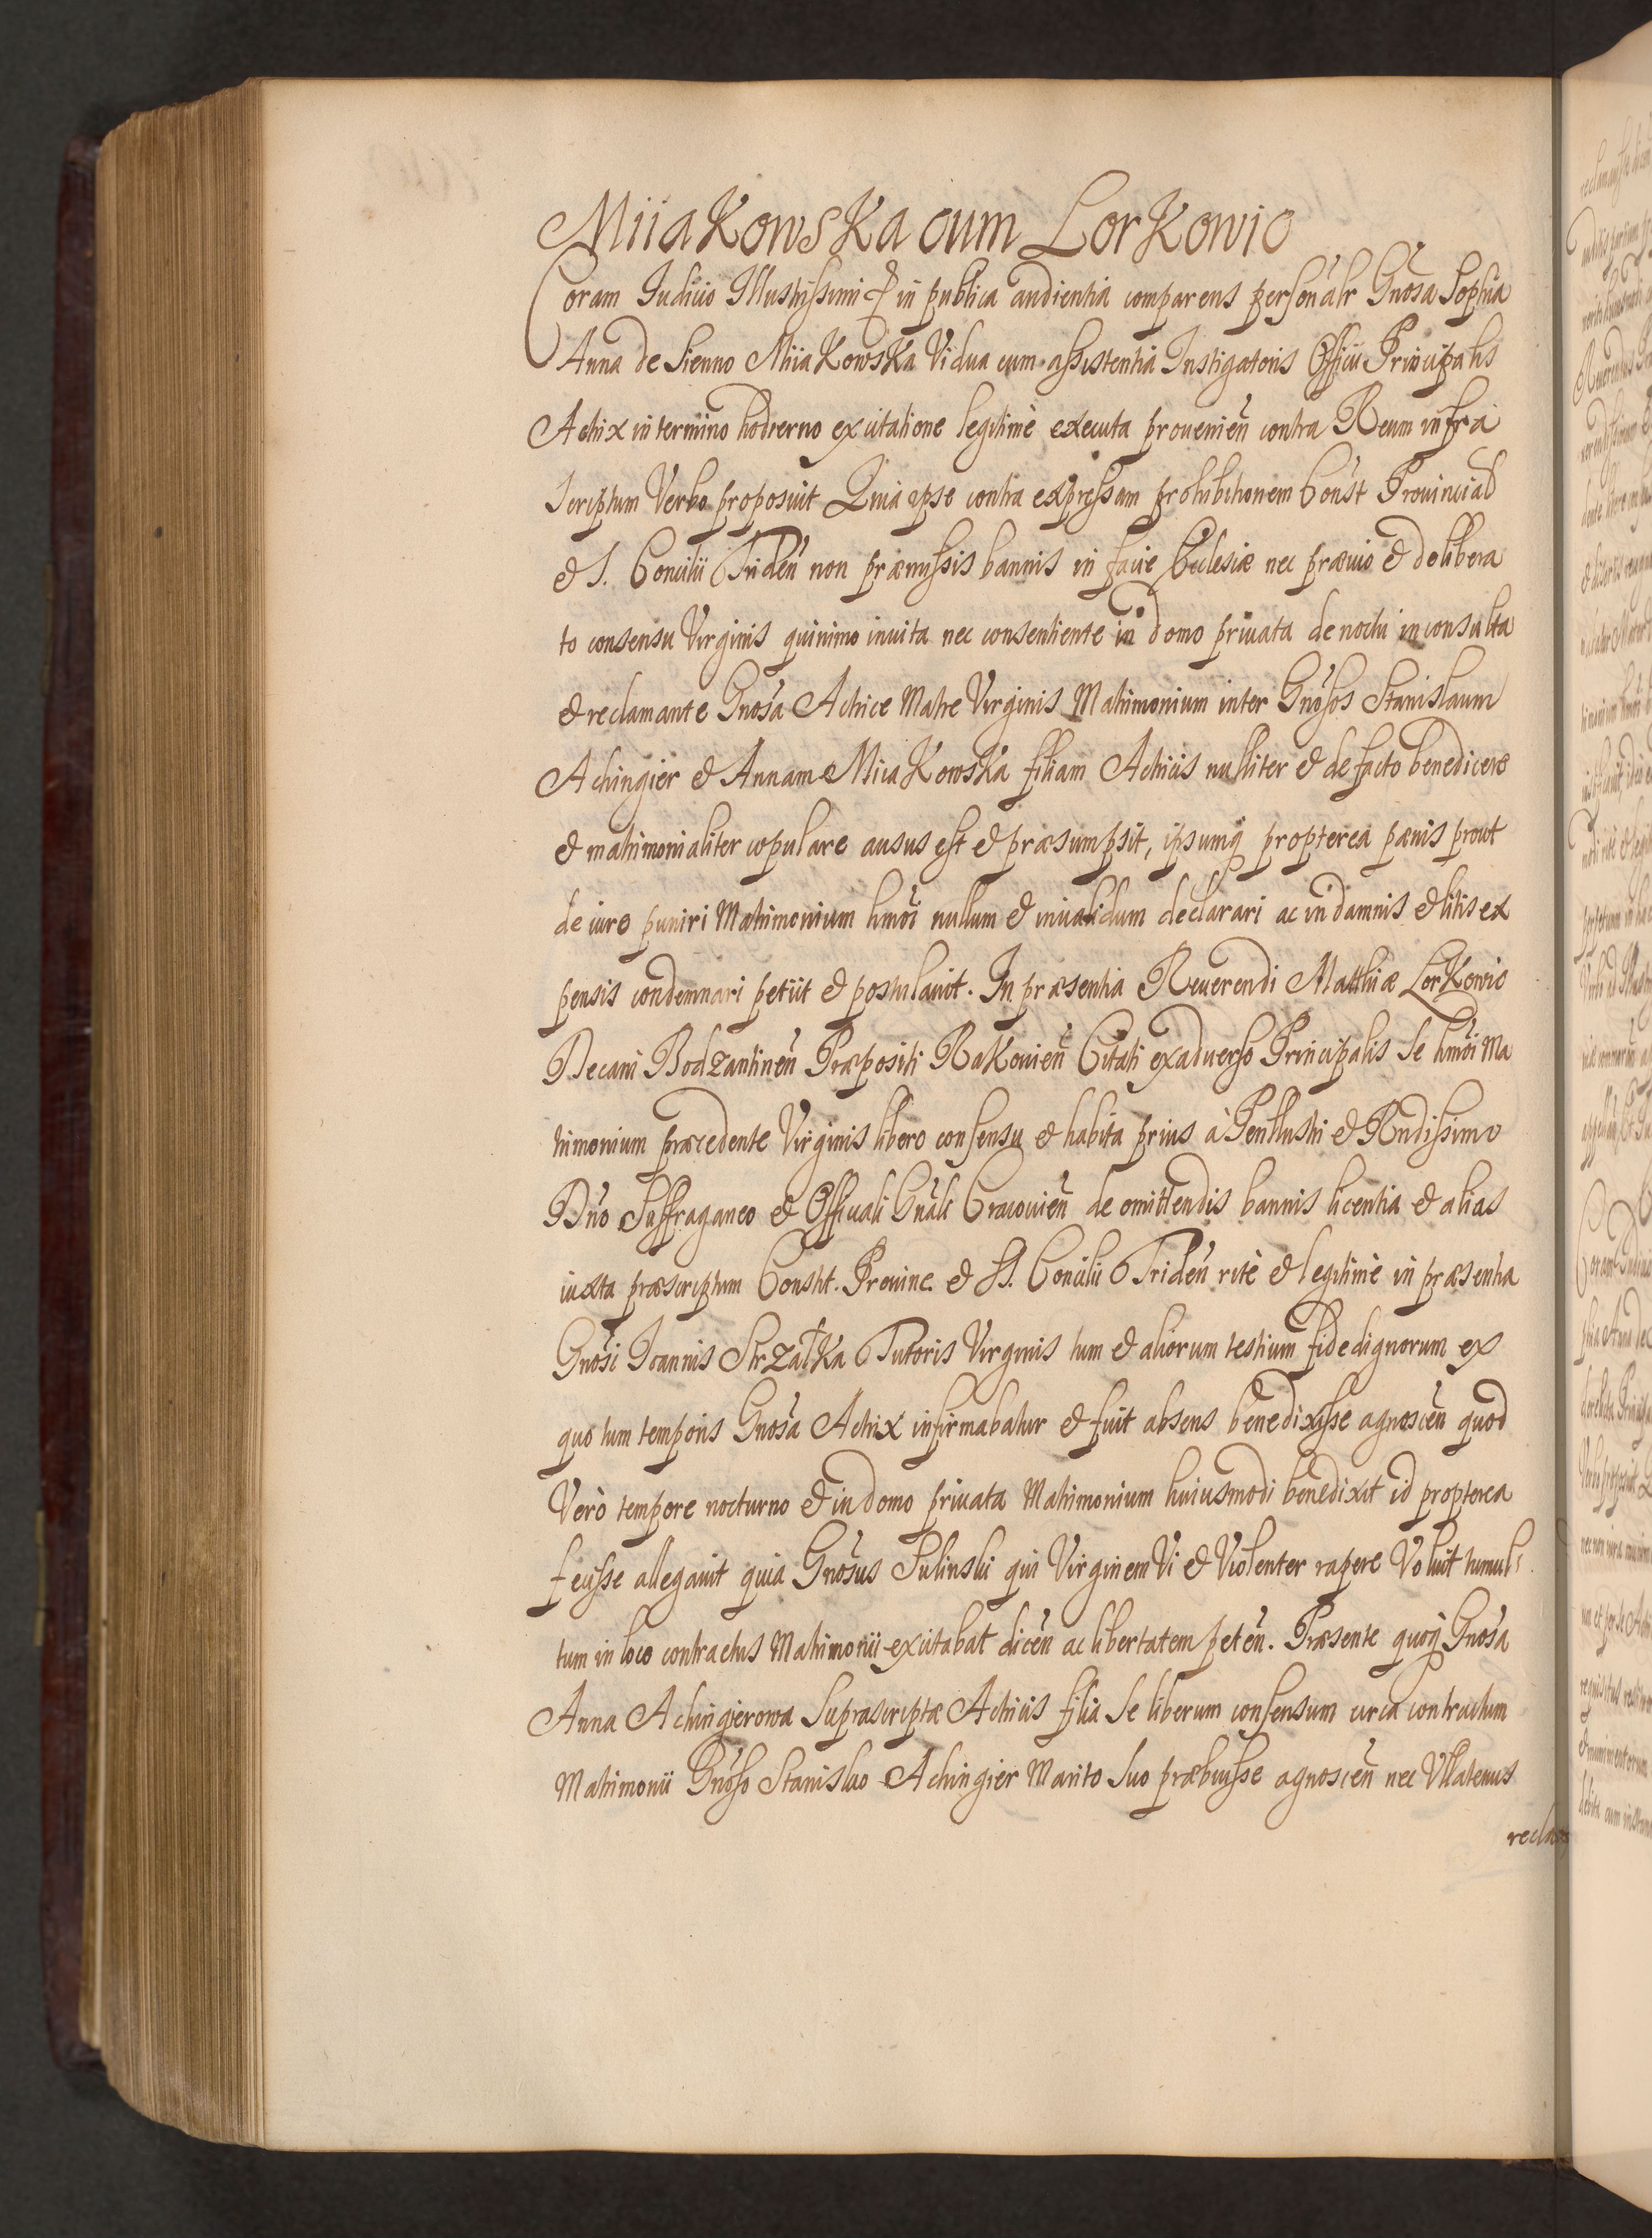 MiiaKowsKa cum LorKowic
Coram Iudicio Illustrissimi & in publica audientia comparens personalr Gnosa Sophia
Anna de Sienno MiiaKowsKa Vidua cum assistentia Instigatoris Officii Principalis
Actrix in termino hodierno ex citatione legitimè executa prouenieñ contra Reum infra
scriptum Verbo proposuit Quia ipse contra expressam prohibitionem Const Prouincial
& S. Concilii Trideñ non præmissis bannis in facie Ecclesiæ nec præuio & delibera
to consensu Virginis quinimo inuita nec consentiente in domo priuata de noctu inconsulta
& reclamante Gnosa Actrice Matre Virginis Matrimonium inter Gnosos Stanislaum
Achingier & Annam MiiaKowsKa filiam Actricis nulliter & de facto benedicere
& matrimonialiter copulare ausus est & præsumpsit, ipsumq propterea pænis prout
de iure puniri Matrimonium hmoi nullum & inualidum declarari ac in damnis & litis ex
pensis condemnari petiit & postulauit. In præsentia Reuerendi Matthiæ LorKowic
Decani Bodzantineñ Præpositi RaKouieñ Citati ex aduerso Principalis se hmoi Ma
trimonium præcedente Virginis libero consensu & habita prius à Perillustri & Rndissimo
Dno Suffraganeo & Officiali Gnali Cracouieñ de omittendis bannis licentia & alias
iuxta præscriptum Constit. Prouinc. & SS. Concilii Trideñ ritè & legitimè in præsentia
Gnosi Ioannis StrzałKa Tutoris Virginis tum & aliorum testium fide dignorum ex
quo tum temporis Gnosa Actrix infirmabatur & fuit absens benedixisse agnosceñ quod
Verò tempore nocturno & in domo priuata Matrimonium huiusmodi benedixit id propterea
fecisse allegauit quia Gnosus Sulinski qui Virginem Vi & Violenter rapere Voluit tumul
tum in loco contractus Matrimonii excitabat diceñ ac libertatem peteñ. Præsente quoq Gnosa
Anna Achingierowa Suprascriptæ Actricis filia Se liberum consensum circa contractum
Matrimonii Gnoso Stanislao Achingier Marito Suo præbuisse agnosceñ nec Vllatenus
recla